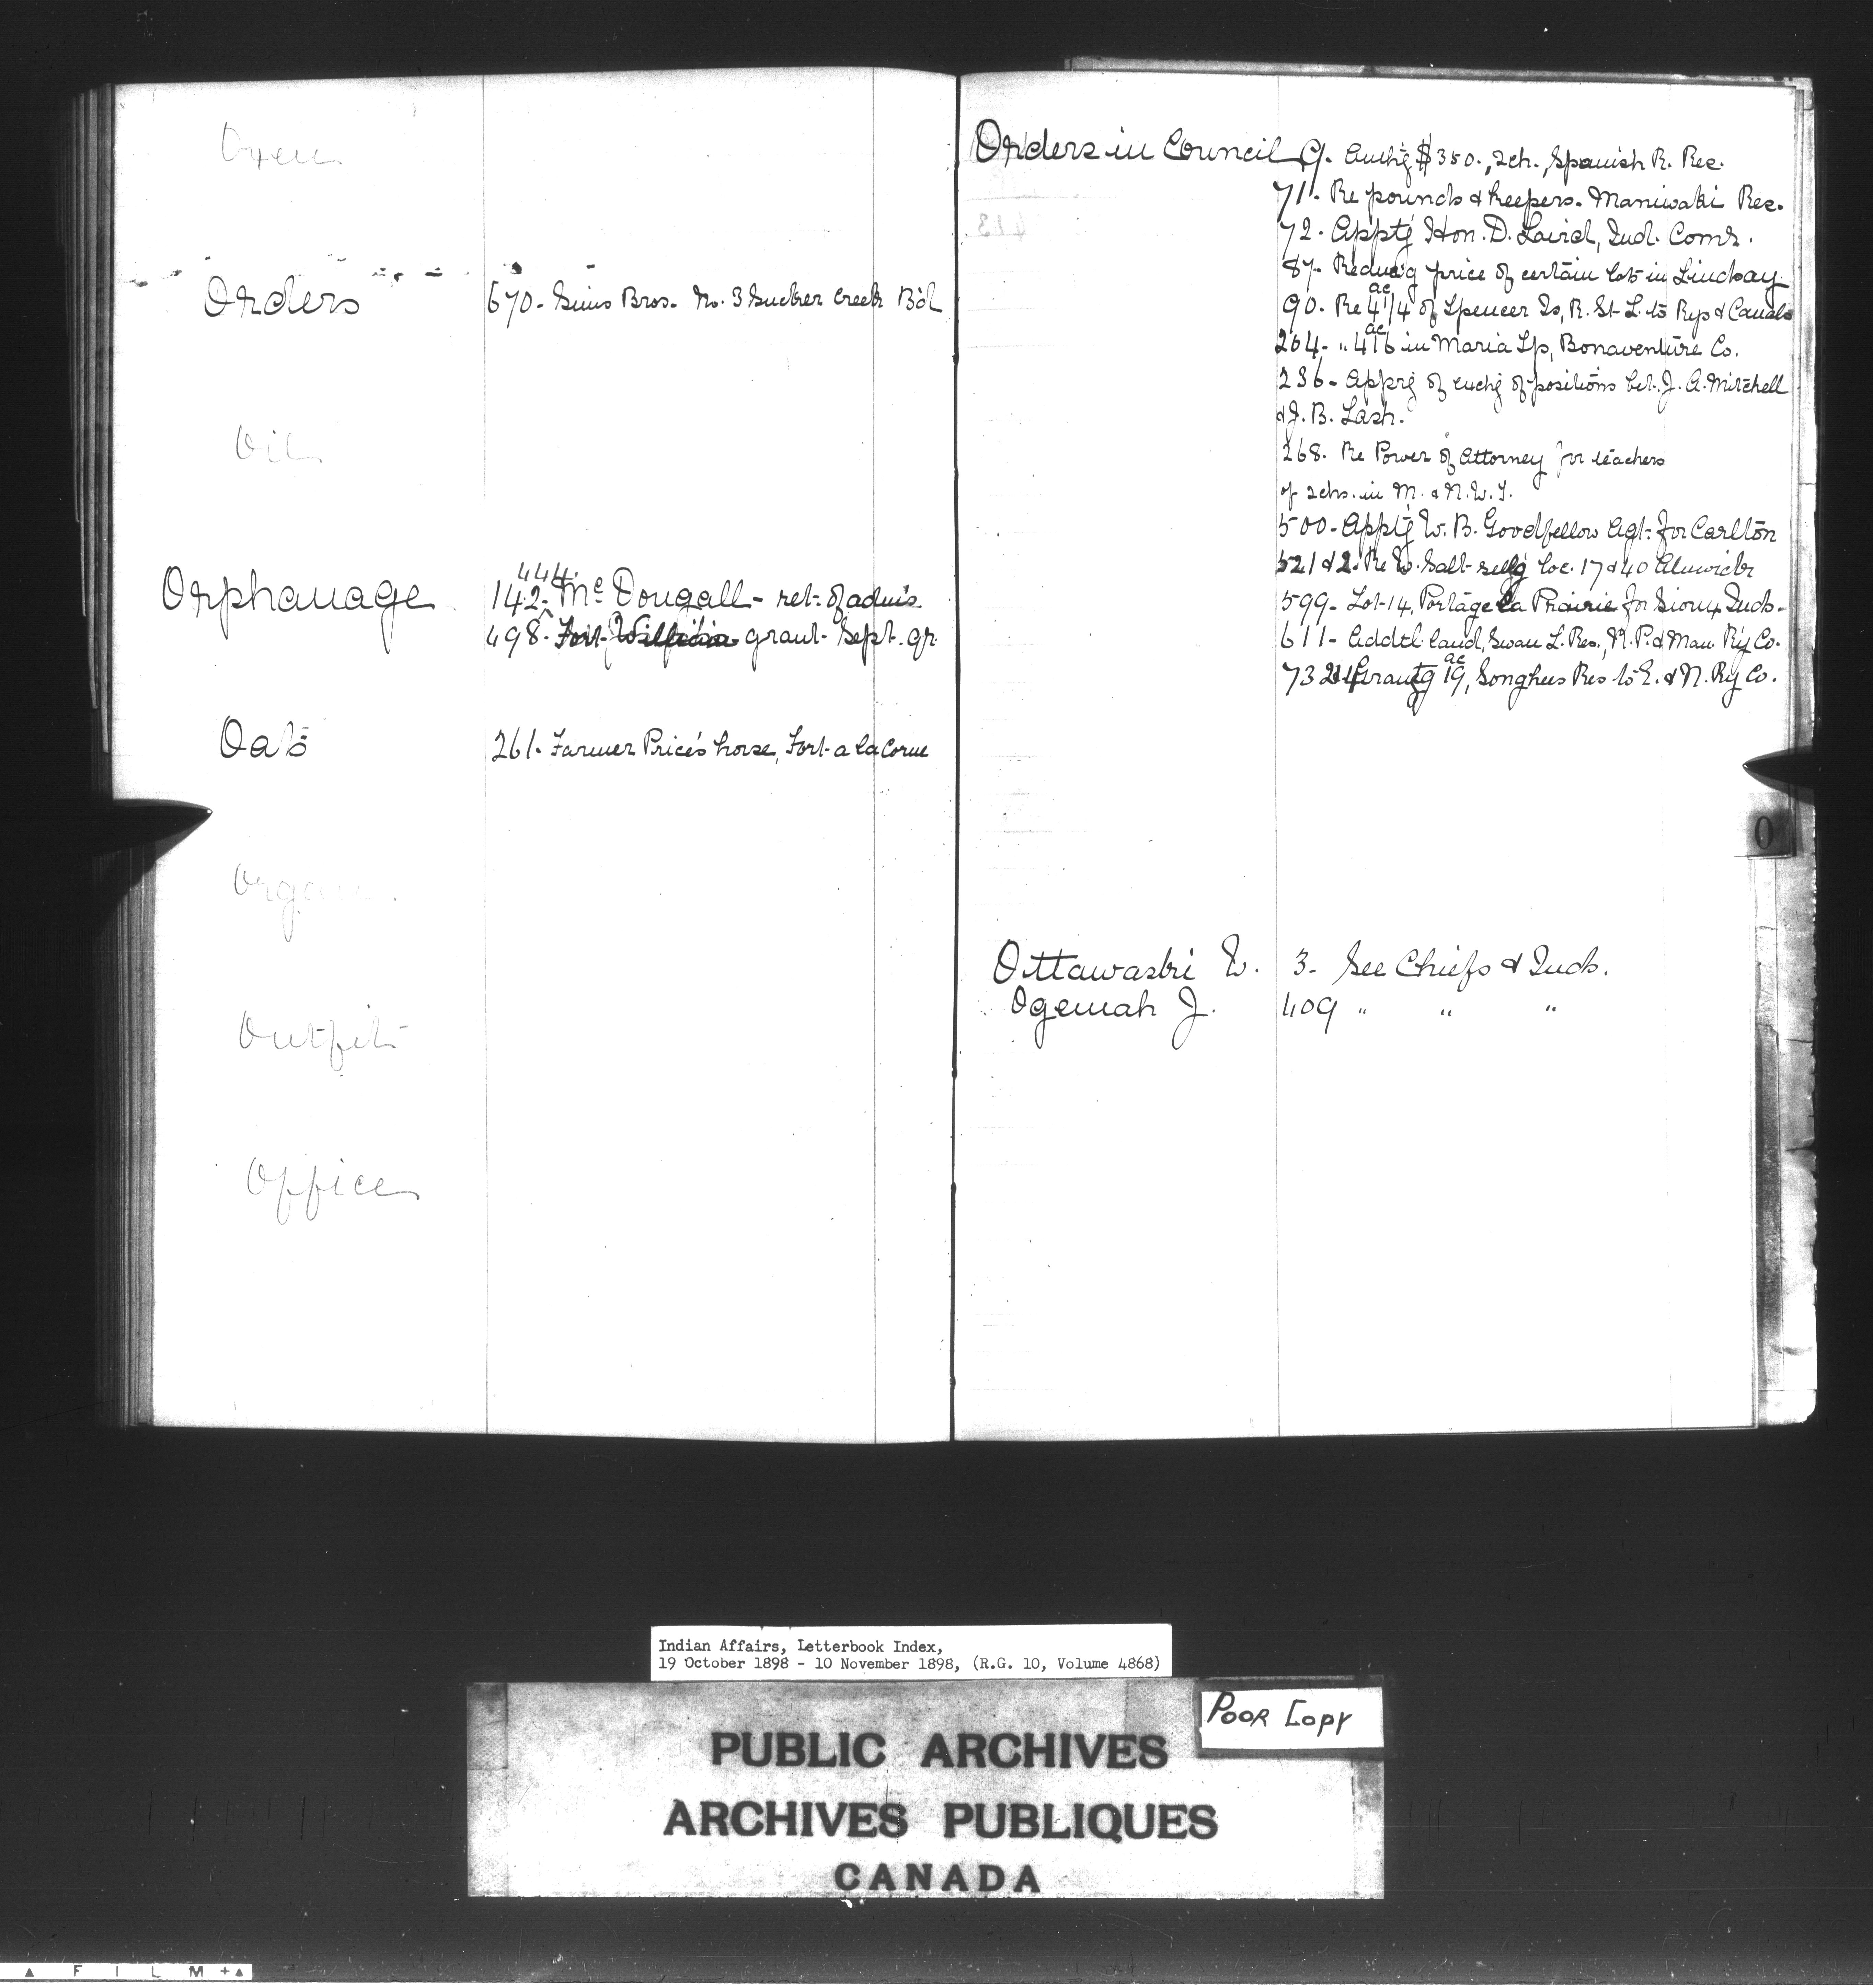 Oxen
Orders 670- Sims Bros. No. 3 Sucker Creek Bdl
Oil
Orphanage 142- 444. McDougall - ret. of admis.
498. Fort William grant Sept. qr.
Oats 261. Farmer Price's horse, Fort a la Corne
Organ
Outfit
Office
Orders in Council 9. Authg $350., sch., Spanish R. Res.
71. Re pounds & keepers. Maniwaki Res.
72. Apptg Hon. D. Laird, Ind. Comr.
87. Reducg price of certain lots in Lindsay
90. Re 4 1/4 ac of Spencer Is, R. St. L. to Rys & Canals
264. " 416 ac in Maria Tp, Bonaventure Co.
236- Apprg of exchg of positions bet. J. A. Mitchell
& J. B. Lash.
268. Re Power of Attorney for teachers
of schs. in M. & N.W.T.
500- Apptg W. B. Goodfellow Agt. for Carlton
521 & 2. Re W. Salt sellg loc. 17 & 40 Alnwick
599- Lot 14, Portage la Prairie for Sioux Inds.
611- Addtl. land, Swan L. Res., N. P. & Man. Ry Co.
732 Grantg 19 ac, Songhees Res to E. & N. Ry Co.
O
Ottawaski W. 3- See Chiefs & Inds.
Ogemah J. 409 " " "
Indian Affairs, Letterbook Index,
19 October 1898 - 10 November 1898, (R.G. 10, Volume 4868)
POOR COPY
PUBLIC ARCHIVES
ARCHIVES PUBLIQUES
CANADA
FILM